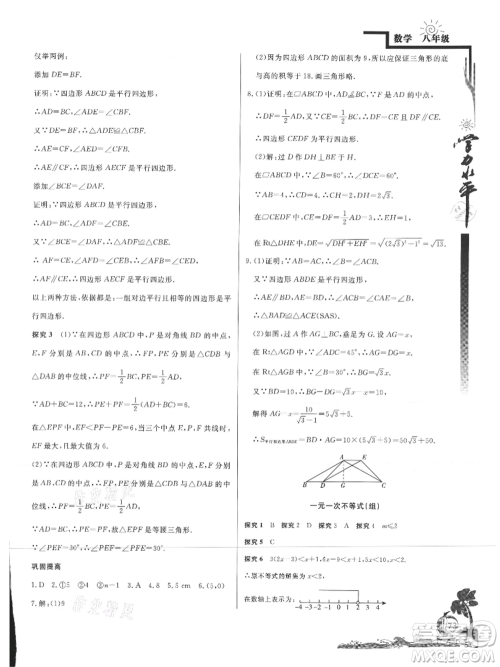 数学 八年级
仅举两例:
添加 DE=BF.
证明:∵四边形 ABCD 是平行四边形,
∴AD=BC,∴AE=CF.
又∵AE∥CF,
∴四边形 AECF 是平行四边形.
添加∠BEA=∠DFC.
证明:∵四边形 ABCD 是平行四边形,
∴AB=CD,∠B=∠D.
又∵∠BEA=∠DFC,∴△ABE≌△CDF.
∴AE=CF.
∴四边形 AECF 是平行四边形.
添加∠BCE=∠DAF.
证明:∵四边形 ABCD 是平行四边形,
∴BC=AD,∠B=∠D.
又∵∠BCE=∠DAF,∴△BCE≌△DAF.
∴AF=CE,∠AFD=∠BEC.
∴AF∥CE.
∴四边形 AECF 是平行四边形.
以上两种方法,一组对边平行且相等的四边形是平行四边形.
探究 3 (1)∵在四边形 ABCD 中,P 是对角线 BD 的中点,
E,F 分别是 AB,CD 的中点,∴PF,PE 分别是△BCD 与
△ABD 的中位线,∴PF=1/2BC,PE=1/2AD.
∵AD+BC=12,∴PF+PE=6.
在△PEF 中,EF<PF+PE,即 EF<6,当点 P 在 EF 上时,
EF=6,∴EF≤6,其最大值为 6.
(2)∵在四边形 ABCD 中,P 是对角线 BD 的中点,E,F 分别
是 AB,CD 的中点,∴PF,PE 分别是△BCD 与△ABD 的中
位线,∴PF=1/2BC,PE=1/2AD.
又∵AD=BC,∴PF=PE,故△PEF 是等腰三角形.
∵∠PEF=30°,∴∠PFE=∠PEF=30°.
巩固提高
1.D 2.①5 ②n-1 3.A 4.5 cm 6.(5,0)
7.解:(1)9
(2)因为四边形 ABCD 的面积为 9,所以应保证三角形的底
与高的积等于 18.画三角形略.
8.(1)证明:在▱ABCD 中,AD∥BC,∵F 是 AD 的中点,
∴DF=1/2AD.又∵CE=1/2BC,∴DF=CE,且 DF∥CE,
∴四边形 CEDF 是平行四边形.
(2)解:过 D 作 DH⊥BE 于点 H.
在▱ABCD 中,∵∠B=60°,∴∠DCE=60°.
∵AB=4,∴CD=4,∴CH=2,DH=2√3.
在▱CEDF 中,CE=DF=1/2AD=3,则 EH=1.
在 Rt△DHE 中,DE=√(DH²+EH²)=√((2√3)²-1²)=√13.
9.(1)证明:∵AB=AC,∴∠B=∠ACB.
又∵四边形 ABDE 是平行四边形,
∴AE∥BD,AE=BD,∴∠ACB=∠CAE=∠B,
∴△DBA≌△EAC(SAS).
(2)过 A 作 AG⊥BC,垂足为 G.设 AG=x,
在 Rt△AGD 中,∵∠ADC=45°,∴AG=DG=x,
在 Rt△AGB 中,∵∠B=30°,∴BG=√3x,
又∵BD=10,∴BG-DG=10,即√3x-x=10,
解得 AG=x=10/(√3-1)=5√3+5.
∴S平行四边形ABDE=BD·AG=10×(5√3+5)=50√3+50.
一元一次不等式(组)
探究 1 B 探究 2 C 探究 3 D 探究 4 m≤2
探究 5 C
探究 6 3(2x-3)<x+1,6x-9<x+1,5x<10,x<2,
∴原不等式的解集为 x<2,
在数轴上表示为:
-4 -3 -2 -1 0 1 2 3 4